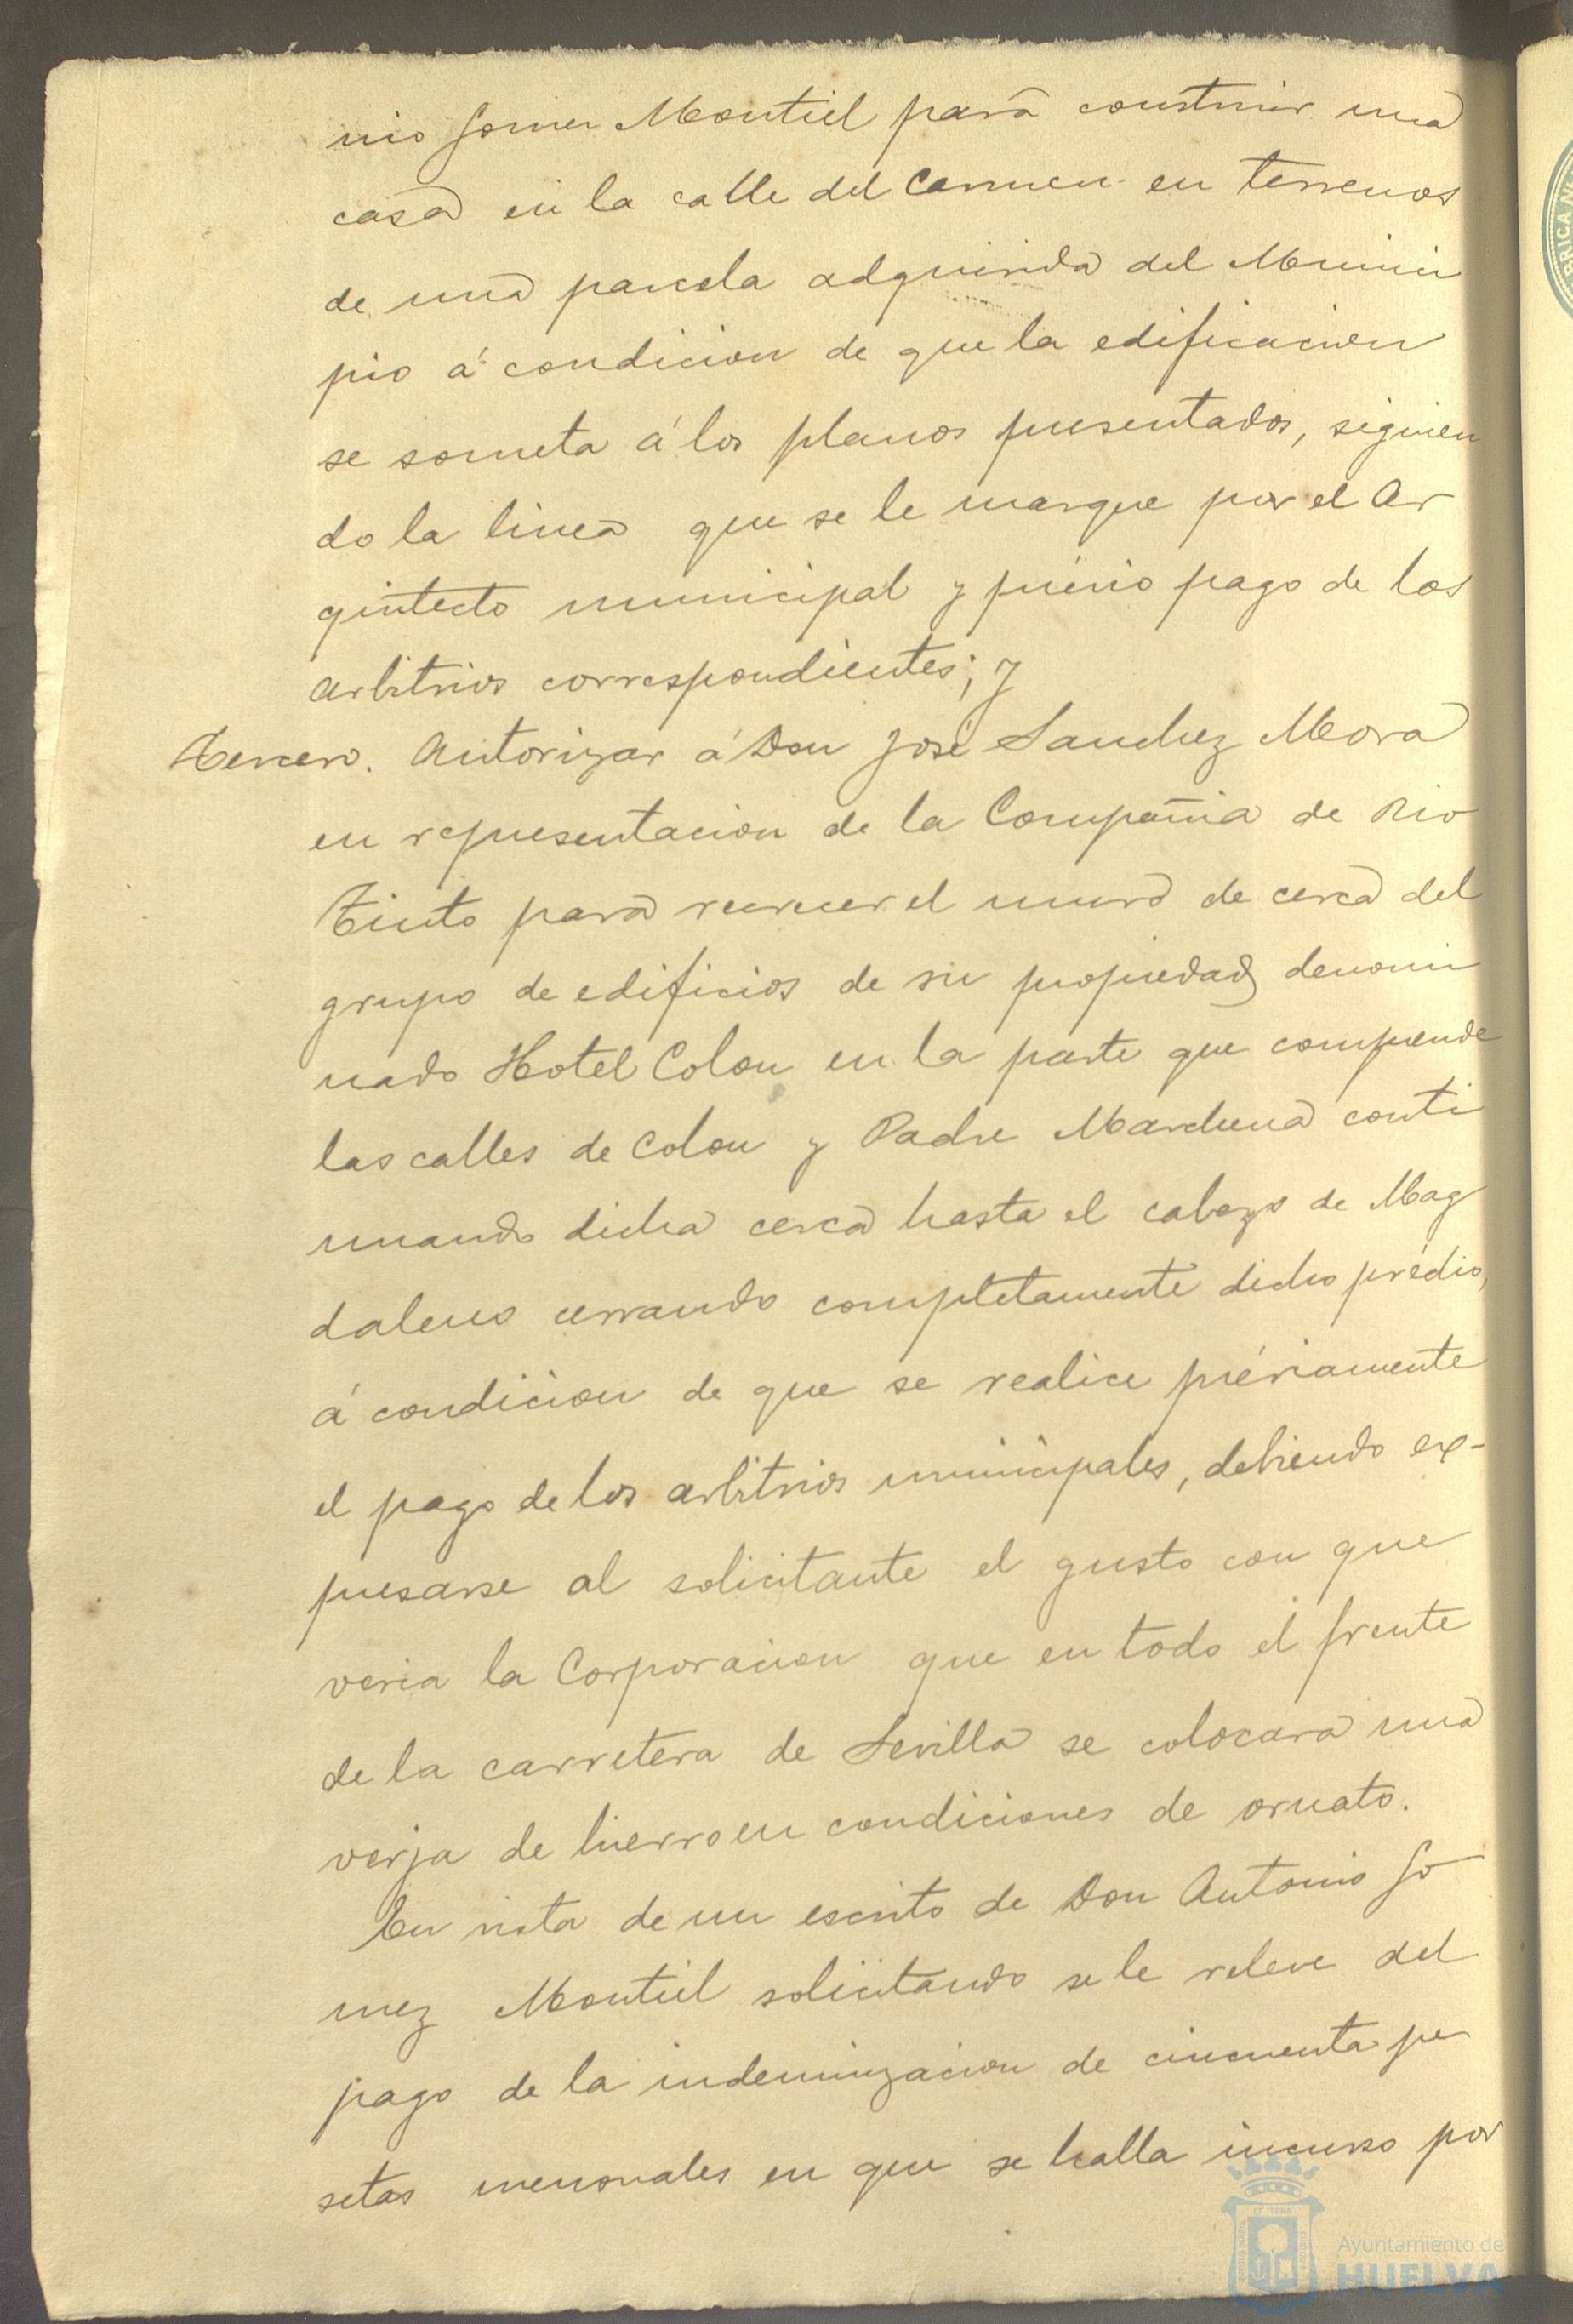 nio Gomez Montiel para construir una
casa en la calle del Carmen en terrenos
de una parcela adquirida del Munici
pio á condicion de que la edificacion
se someta á los planos presentados, siguien
do la linea que se le marque por el Ar
quitecto municipal y prévio pago de los
arbitrios correspondientes; y
Tercero. Autorizar á Don José Sanchez Mora
en representacion de la Compañia de Rio
Tinto para recrecer el muro de cerca del
grupo de edificios de su propiedad denomi
nado Hotel Colon en la parte que comprende
las calles de Colon y Padre Marchena conti
nuando dicha cerca hasta el cabezo de Mag
daleno cerrando completamente dicho prédio,
á condicion de que se realice préviamente
el pago de los arbitrios municipales, debiendo ex-
presarse al solicitante el gusto con que
veria la Corporacion que en todo el frente
de la carretera de Sevilla se colocara una
verja de hierro en condiciones de ornato.
En vista de un escrito de Don Antonio Go
mez Montiel solicitando se le releve del
pago de la indemnizacion de cincuenta pe
setas mensuales en que se halla incurso por
Ayuntamiento de
HUELVA